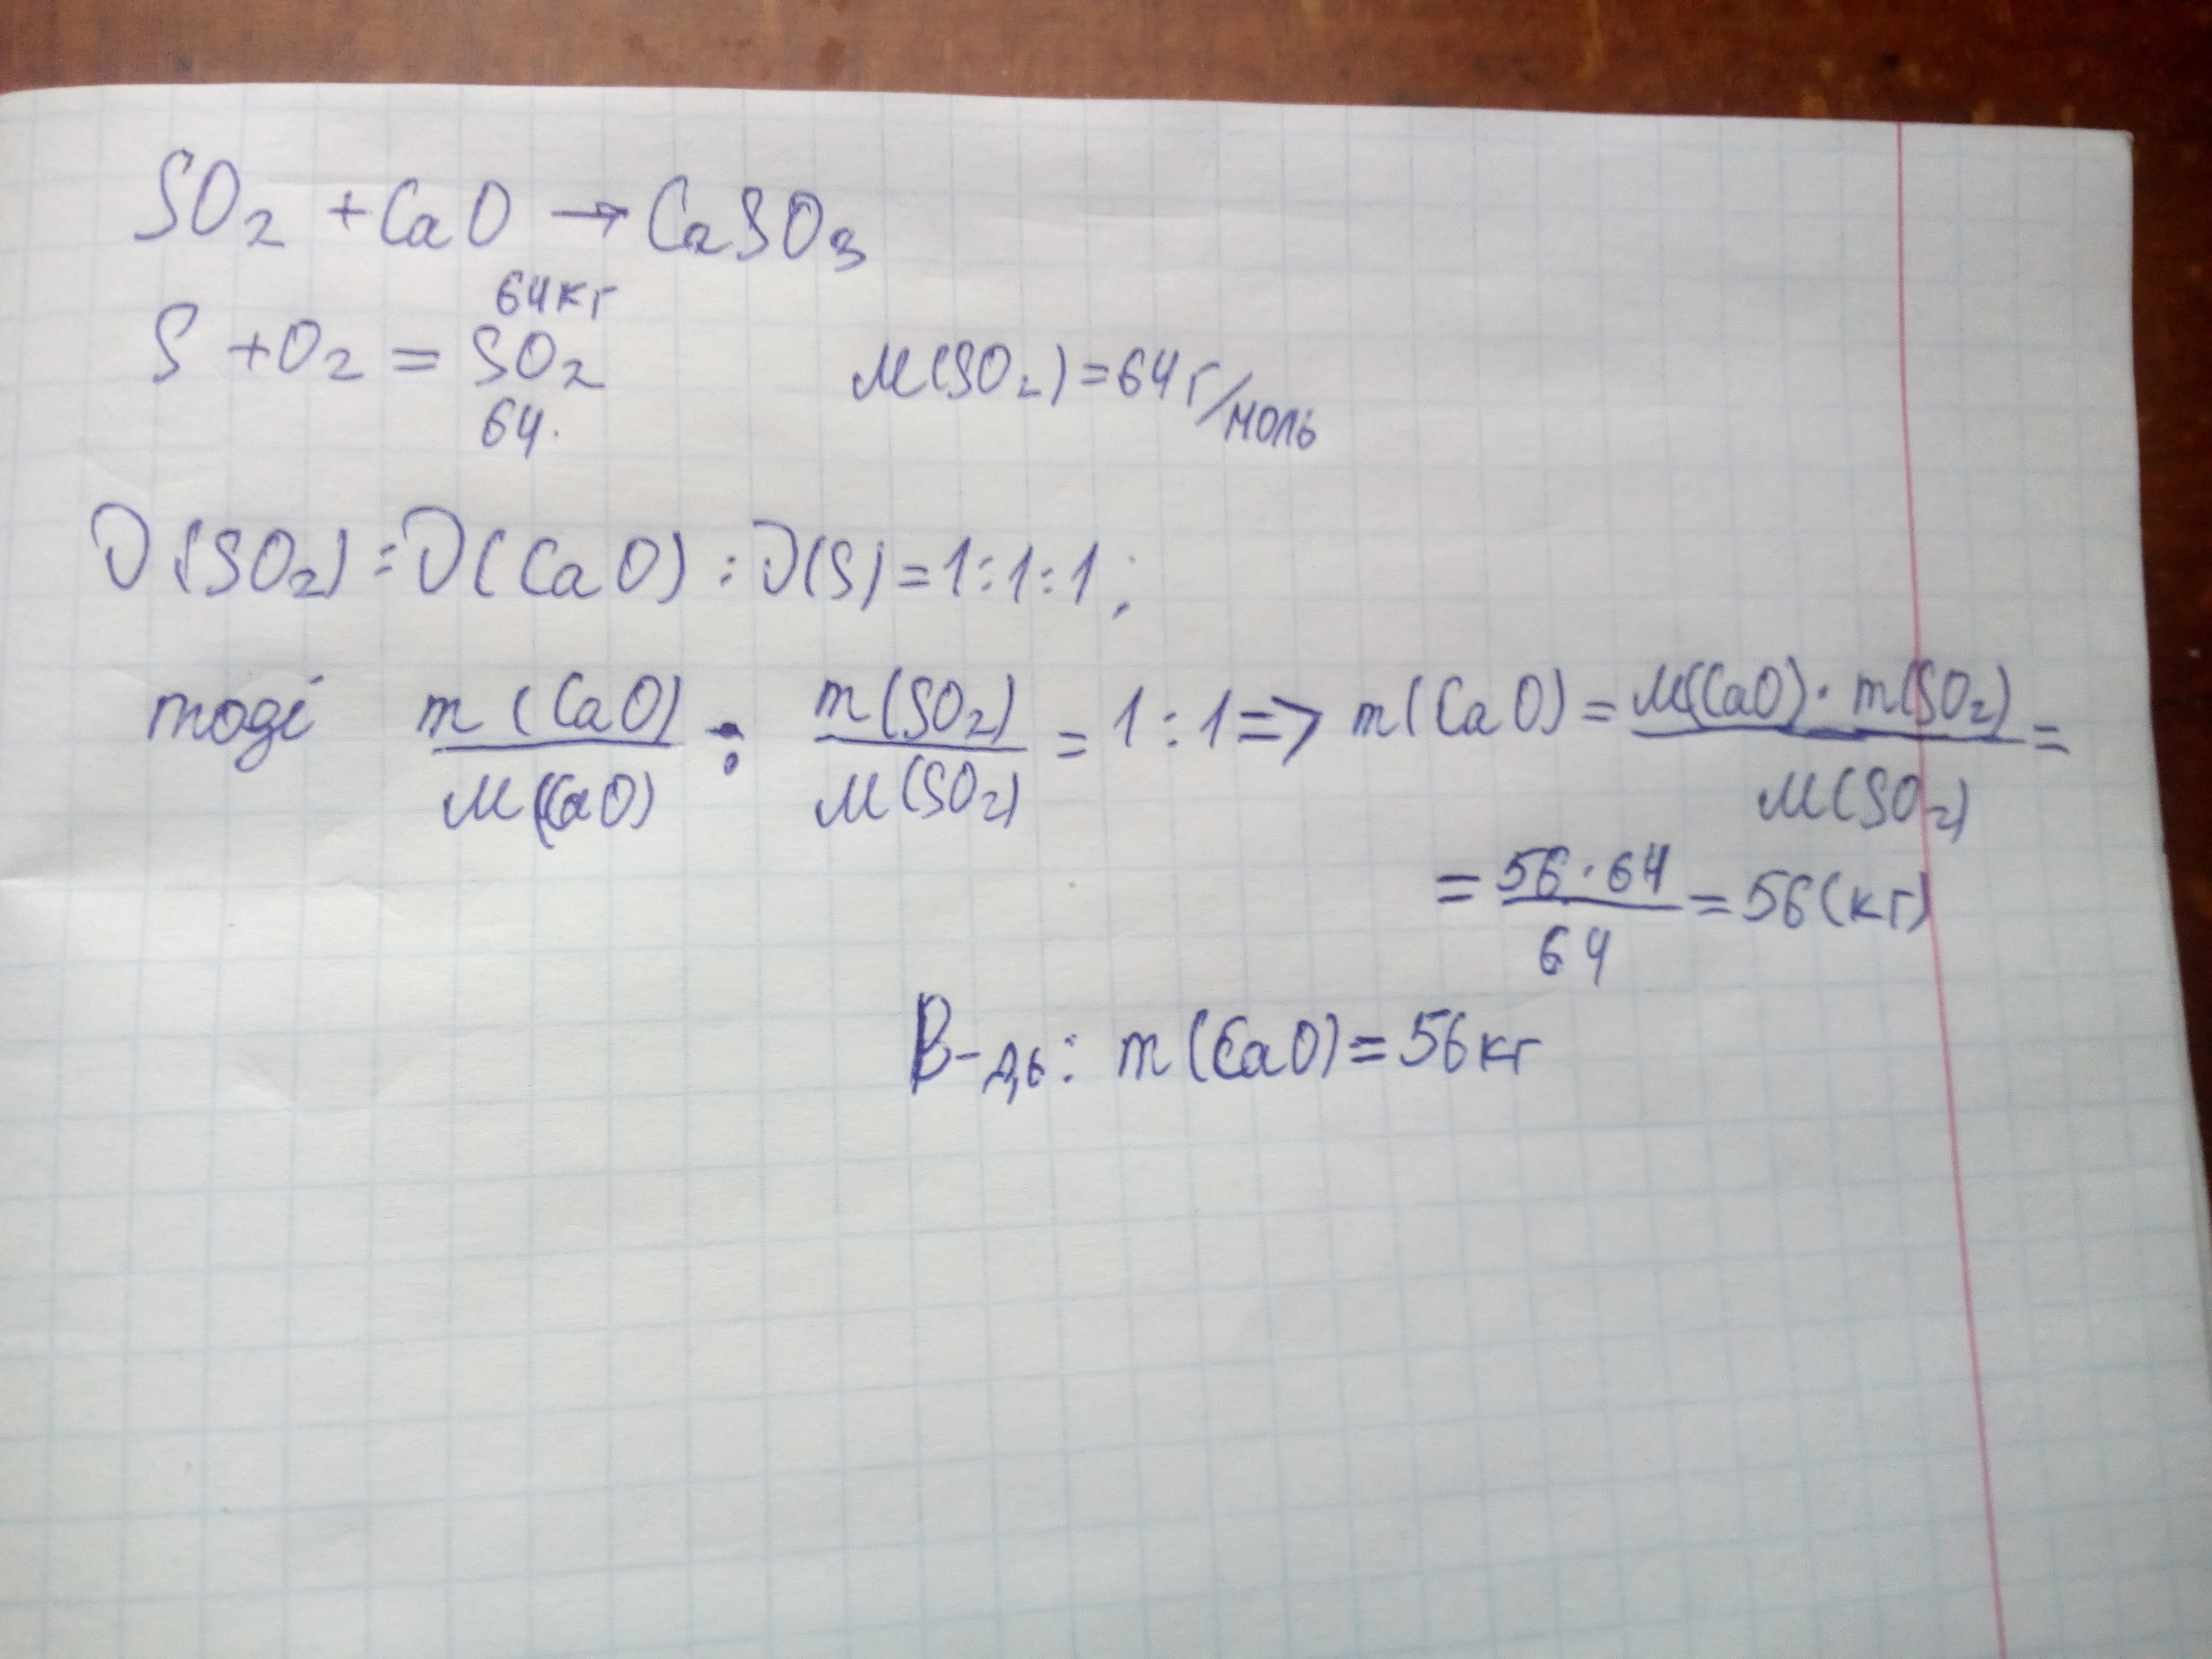 SO₂ + CaO → CaSO₃
64кг
S + O₂ = SO₂
64.
M(SO₂) = 64 г/моль
ν(SO₂) : ν(CaO) : ν(S) = 1:1:1;
тоді m(CaO)/M(CaO) : m(SO₂)/M(SO₂) = 1:1 => m(CaO) = M(CaO)·m(SO₂)/M(SO₂) =
= 56·64/64 = 56(кг)
В-дь: m(CaO) = 56кг